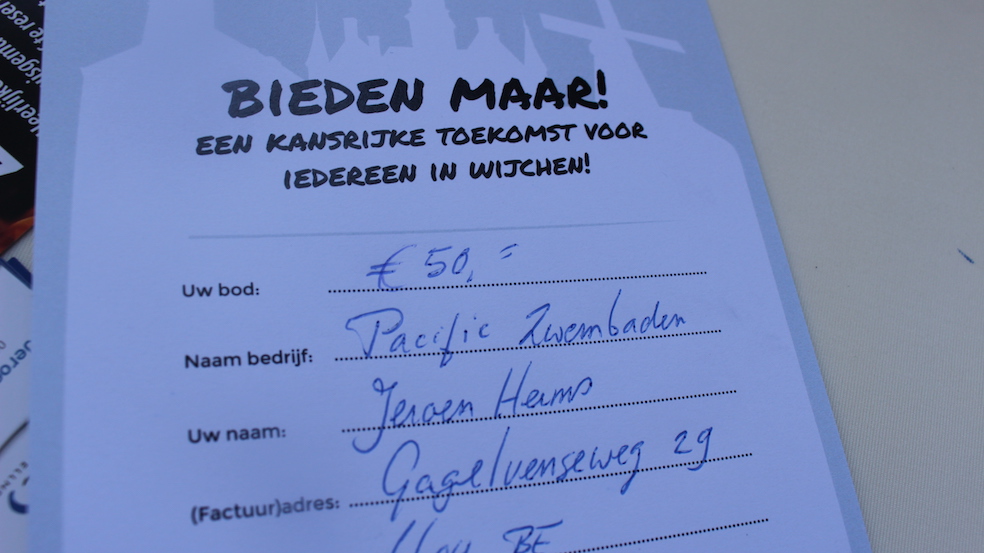 BIEDEN MAAR!
EEN KANSRIJKE TOEKOMST VOOR
IEDEREEN IN WIJCHEN!
Uw bod: € 50,=
Naam bedrijf: Pacific Zwembaden
Uw naam: Jeroen Herms
(Factuur)adres: Gagelvenseweg 29
BE